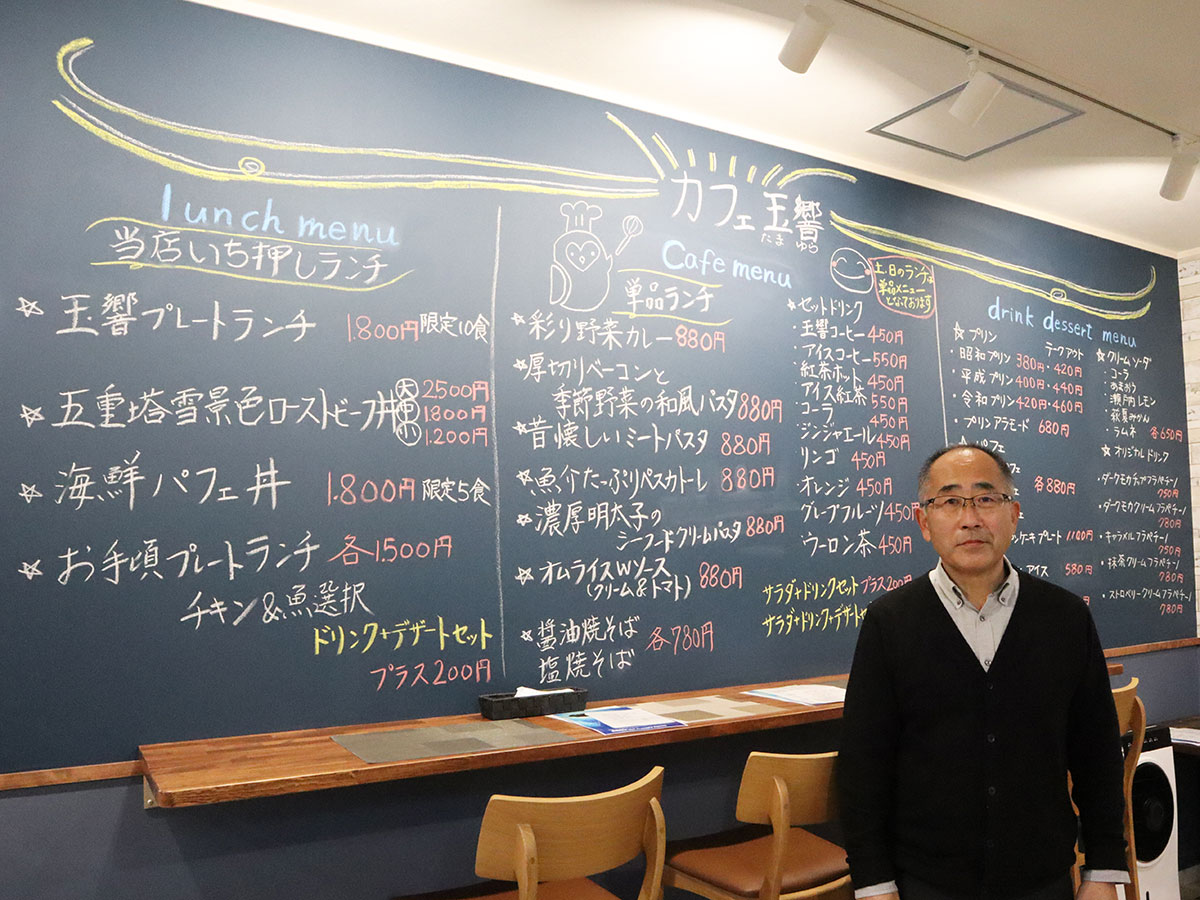 カフェ玉響
たまゆら
lunch menu
当店いち押しランチ
☆玉響プレートランチ 1.800円 限定10食
☆五重塔雪景色ローストビーフ丼 大 2500円
中 1.800円
小 1.200円
☆海鮮パフェ丼 1.800円 限定5食
☆お手頃プレートランチ 各1.500円
チキン&魚選択
ドリンク+デザートセット
プラス200円
Cafe menu
単品ランチ
土.日のランチは
単品メニュー
となっております
☆彩り野菜カレー 880円
☆厚切りベーコンと
季節野菜の和風パスタ 880円
☆昔懐しいミートパスタ 880円
☆魚介たーぷりペスカトーレ 880円
☆濃厚明太子の
シーフードクリームパスタ 880円
☆オムライスWソース
(クリーム&トマト) 880円
☆醤油焼そば
塩焼そば 各780円
☆セットドリンク
・玉響コーヒー 450円
・アイスコーヒー 550円
・紅茶ホット 450円
・アイス紅茶 550円
・コーラ 450円
・ジンジャエール 450円
・リンゴ 450円
・オレンジ 450円
・グレープフルーツ 450円
・ウーロン茶 450円
サラダ+ドリンクセット プラス200
サラダ+ドリンク+デザートセ
drink dessert menu
☆プリン テークアウト
・昭和プリン 380円・420円
・平成プリン 400円・440円
・令和プリン 420円・460円
・プリンアラモード 680円
パフェ
フェ
各880円
ンケーキプレート 1100円
アイス 580円
☆クリームソーダ
・コーラ
・瀬戸内レモン
・萩夏みかん
・ラムネ 各650円
☆オリジナルドリンク
・ダークモカチップフラペチーノ
750円
・ダークモカクリームフラペチーノ
780円
・キャラメルフラペチーノ
750円
・抹茶クリームフラペチーノ
780円
・ストロベリークリームフラペチーノ
780円